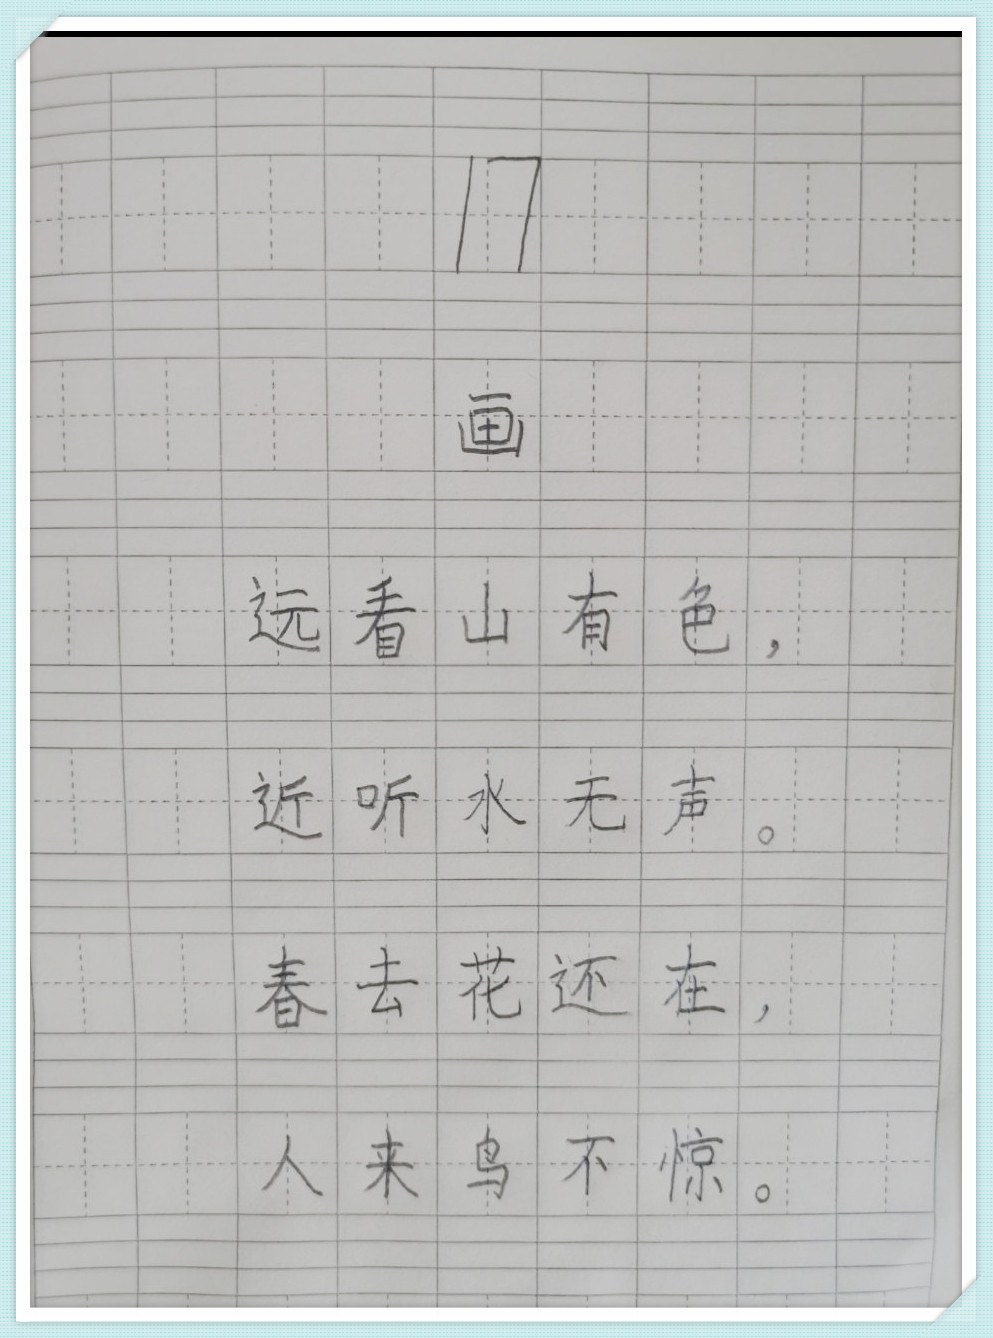 17
画
远看山有色，
近听水无声。
春去花还在，
人来鸟不惊。